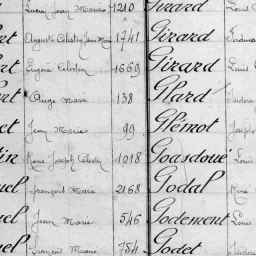 Jean Marie 1210 Girard Louis
rt Auguste Célestin Jean Marie 1741 Girard
rt Eugène Célestin 1669 Girard Louis
rt Ange Marie 138 Glard
et Jean Marie 99 Glémot Joseph
in René Joseph 1018 Goasdoué Louis
uel François Marie 2168 Godal René
uel Jean Marie 546 Godement Louis
uel François Marie 754 Godet